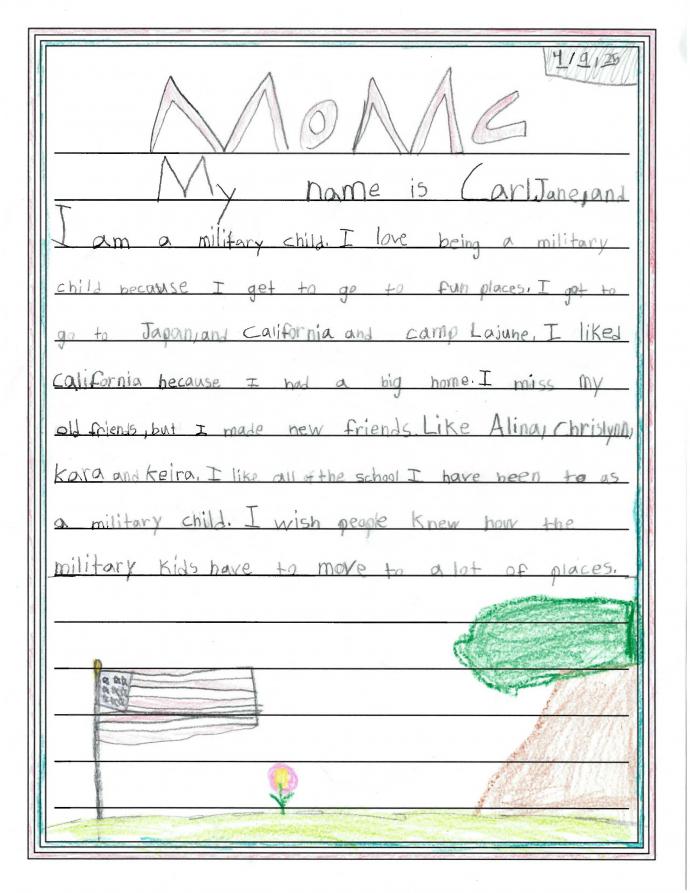 4/9,25
MOMC
My name is CarlJane, and
I am a military child. I love being a military
child because I get to go to fun places. I got to
go to Japan, and California and camp Lajune, I liked
California because I had a big home. I miss my
old friends, but I made new friends. Like Alina, Chrislynn,
Kara and Keira. I like all of the school I have been to as
a military child. I wish people knew how the
military kids have to move to a lot of places.